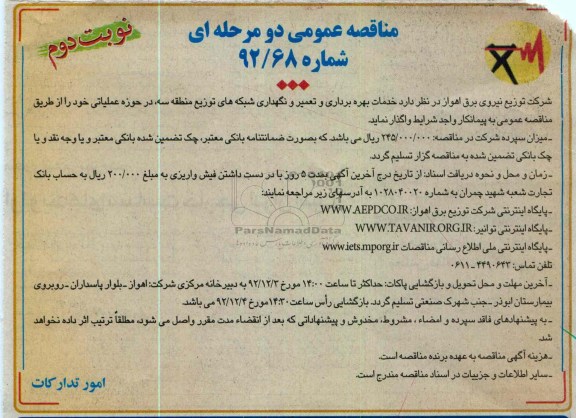 نوبت دوم
مناقصه عمومی دو مرحله ای
شماره ۹۲/۶۸
شرکت توزیع نیروی برق اهواز در نظر دارد خدمات بهره برداری و تعمیر و نگهداری شبکه های توزیع منطقه سه، در حوزه عملیاتی خود را از طریق
مناقصه عمومی به پیمانکار واجد شرایط واگذار نماید.
ـ میزان سپرده شرکت در مناقصه: ۲۴۵/۰۰۰/۰۰۰ ریال می باشد. که بصورت ضمانتنامه بانکی معتبر، چک تضمین شده بانکی معتبر و یا وجه نقد و یا
چک بانکی تضمین شده به مناقصه گزار تسلیم گردد.
ـ زمان و محل و نحوه دریافت اسناد: از تاریخ درج آخرین آگهی بمدت ۵ روز با در دست داشتن فیش واریزی به مبلغ ۲۰۰/۰۰۰ ریال به حساب بانک
تجارت شعبه شهید چمران به شماره ۱۰۲۸۰۴۰۰۲۰ به آدرسهای زیر مراجعه نمایند:
ـ پایگاه اینترنتی شرکت توزیع برق اهواز: WWW.AEPDCO.IR
ـ پایگاه اینترنتی توانیر: WWW.TAVANIR.ORG.IR
ـ پایگاه اینترنتی ملی اطلاع رسانی مناقصات www.iets.mporg.ir
تلفن تماس: ۴۴۹۰۶۴۳ - ۰۶۱۱
ـ آخرین مهلت و محل تحویل و بازگشایی پاکات: حداکثر تا ساعت ۱۴:۰۰ مورخ ۹۲/۱۲/۳ به دبیرخانه مرکزی شرکت: اهواز ـ بلوار پاسداران ـ روبروی
بیمارستان ابوذر ـ جنب شهرک صنعتی تسلیم گردد. بازگشایی رأس ساعت ۱۴:۳۰ مورخ ۹۲/۱۲/۴ می باشد.
ـ به پیشنهادهای فاقد سپرده و امضاء ، مشروط، مخدوش و پیشنهاداتی که بعد از انقضاء مدت مقرر واصل می شود، مطلقاً ترتیب اثر داده نخواهد
شد.
ـ هزینه آگهی مناقصه به عهده برنده مناقصه است.
ـ سایر اطلاعات و جزییات در اسناد مناقصه مندرج است.
امور تدارکات
ParsNamadData